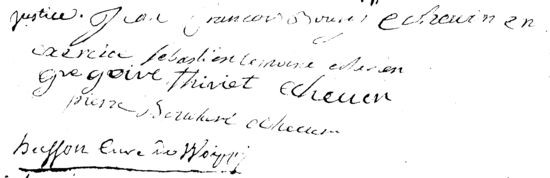 justice. Jean françois echevin en
exercice sebastien lemoine echevin
gregoire thiriet echeuin
pierre echeuin
buffon Curé de Woippy